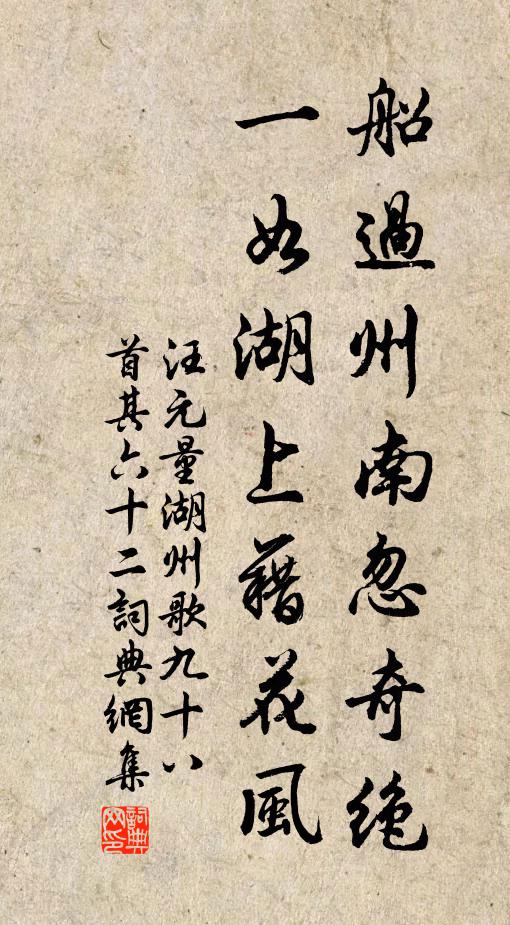 船過州南忽奇絶
一如湖上藕花風
汪元量湖州歌九十八
首其六十二詞典網集
詞典
网印